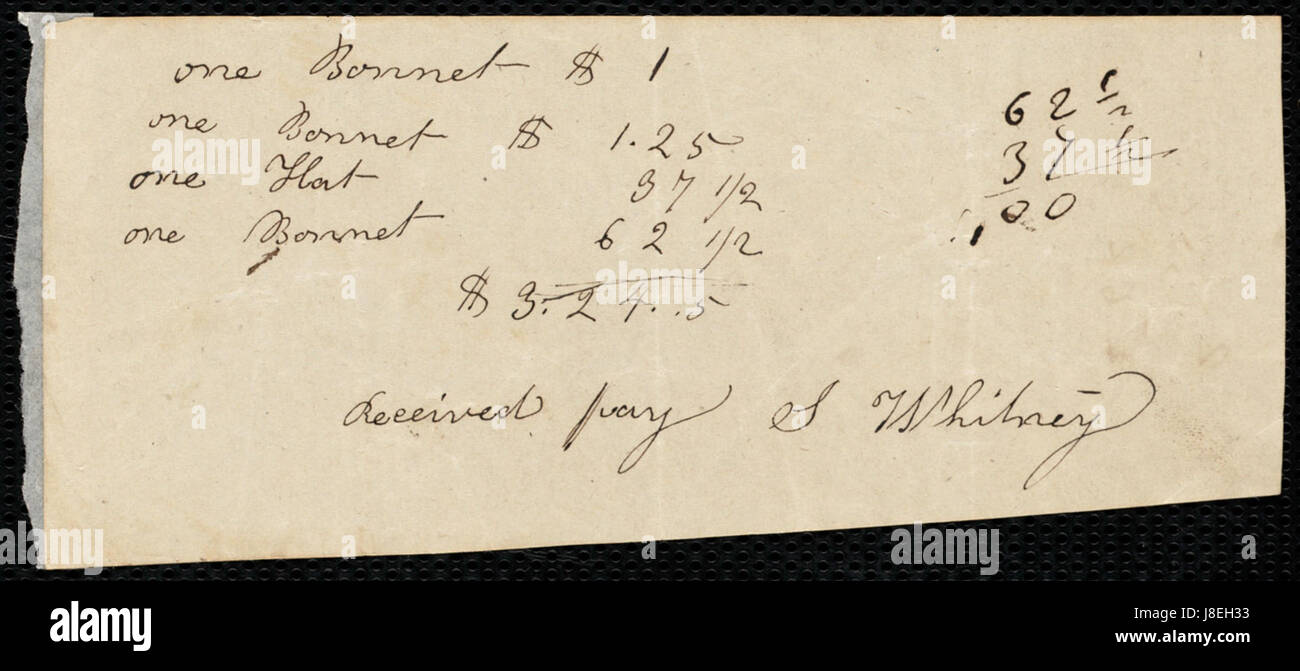 one Bonnet $ 1
one Bonnet $ 1.25
one Hat 37 1/2
one Bonnet 62 1/2
$ 3.24.5
62 1/2
37 1/2
1,00
Received pay S Whitney
alamy
alamy
Image ID: J8EH33
www.alamy.com